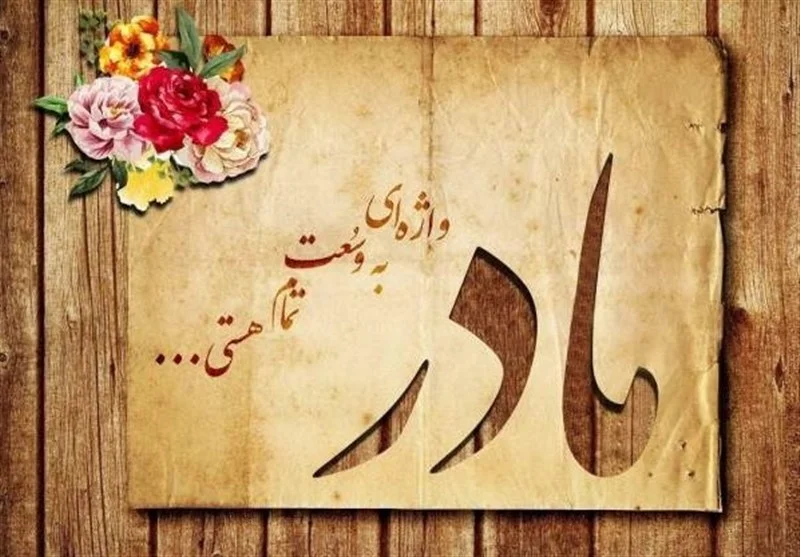 مادر
واژه‌ای
به وُسْعت
تمام
هستی...